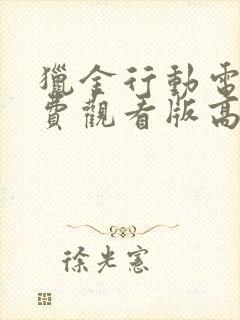 獵金行動電
費觀看版高
徐光憲